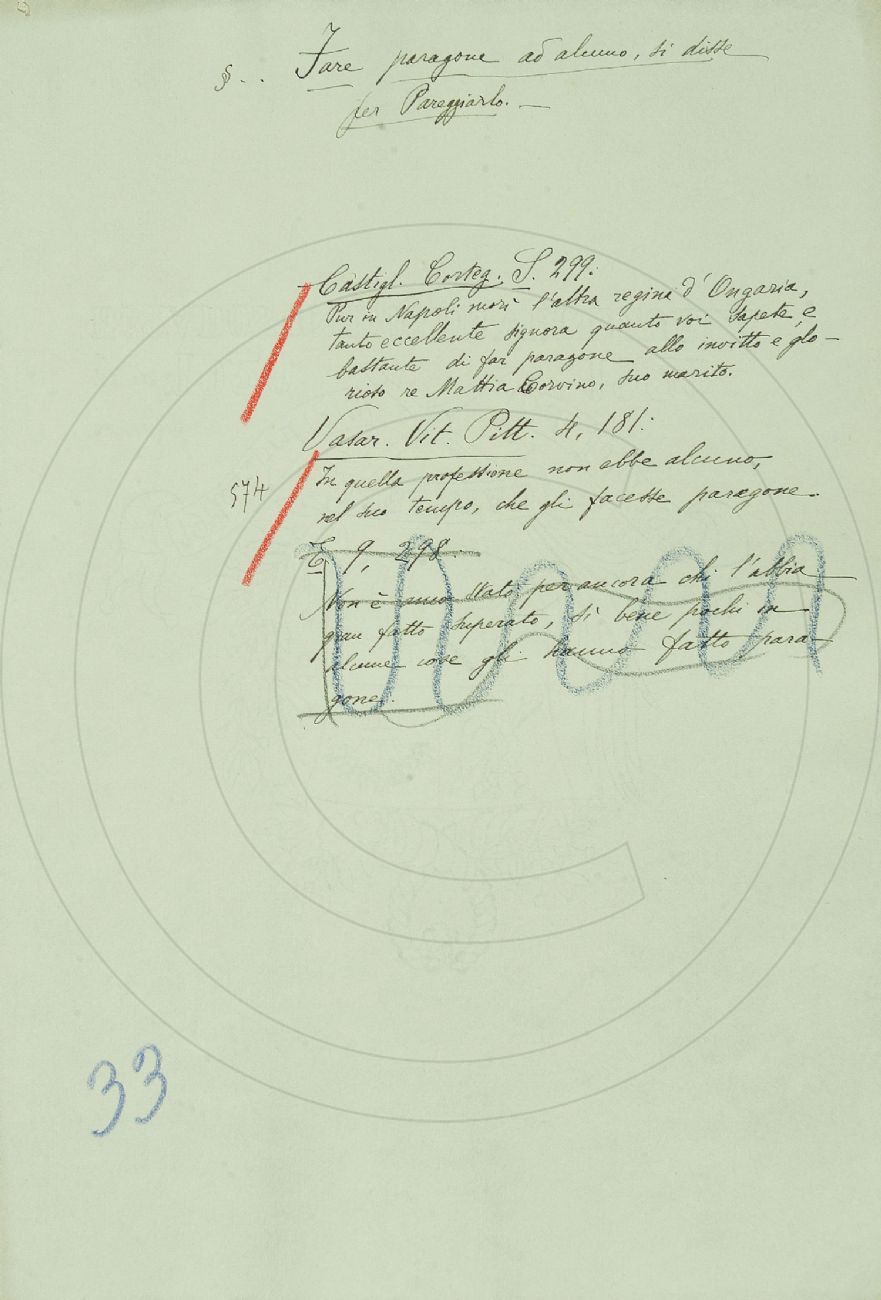 § .. Fare paragone ad alcuno, si disse
per Pareggiarlo. —
Castigl. Corteg. S. 299:
Pur in Napoli morì l'altra regina d'Ongaria,
tanto eccellente signora quanto voi sapete, e
bastante di far paragone allo invitto e glo-
rioso re Mattia Corvino, suo marito.
Vasar. Vit. Pitt. 4, 181:
574
In quella professione non ebbe alcuno,
nel suo tempo, che gli facesse paragone.
E 9, 298
Non è stato per ancora chi l'abbia
gran fatto superato, sì bene pochi in
alcune cose gli hanno fatto para-
gone.
33